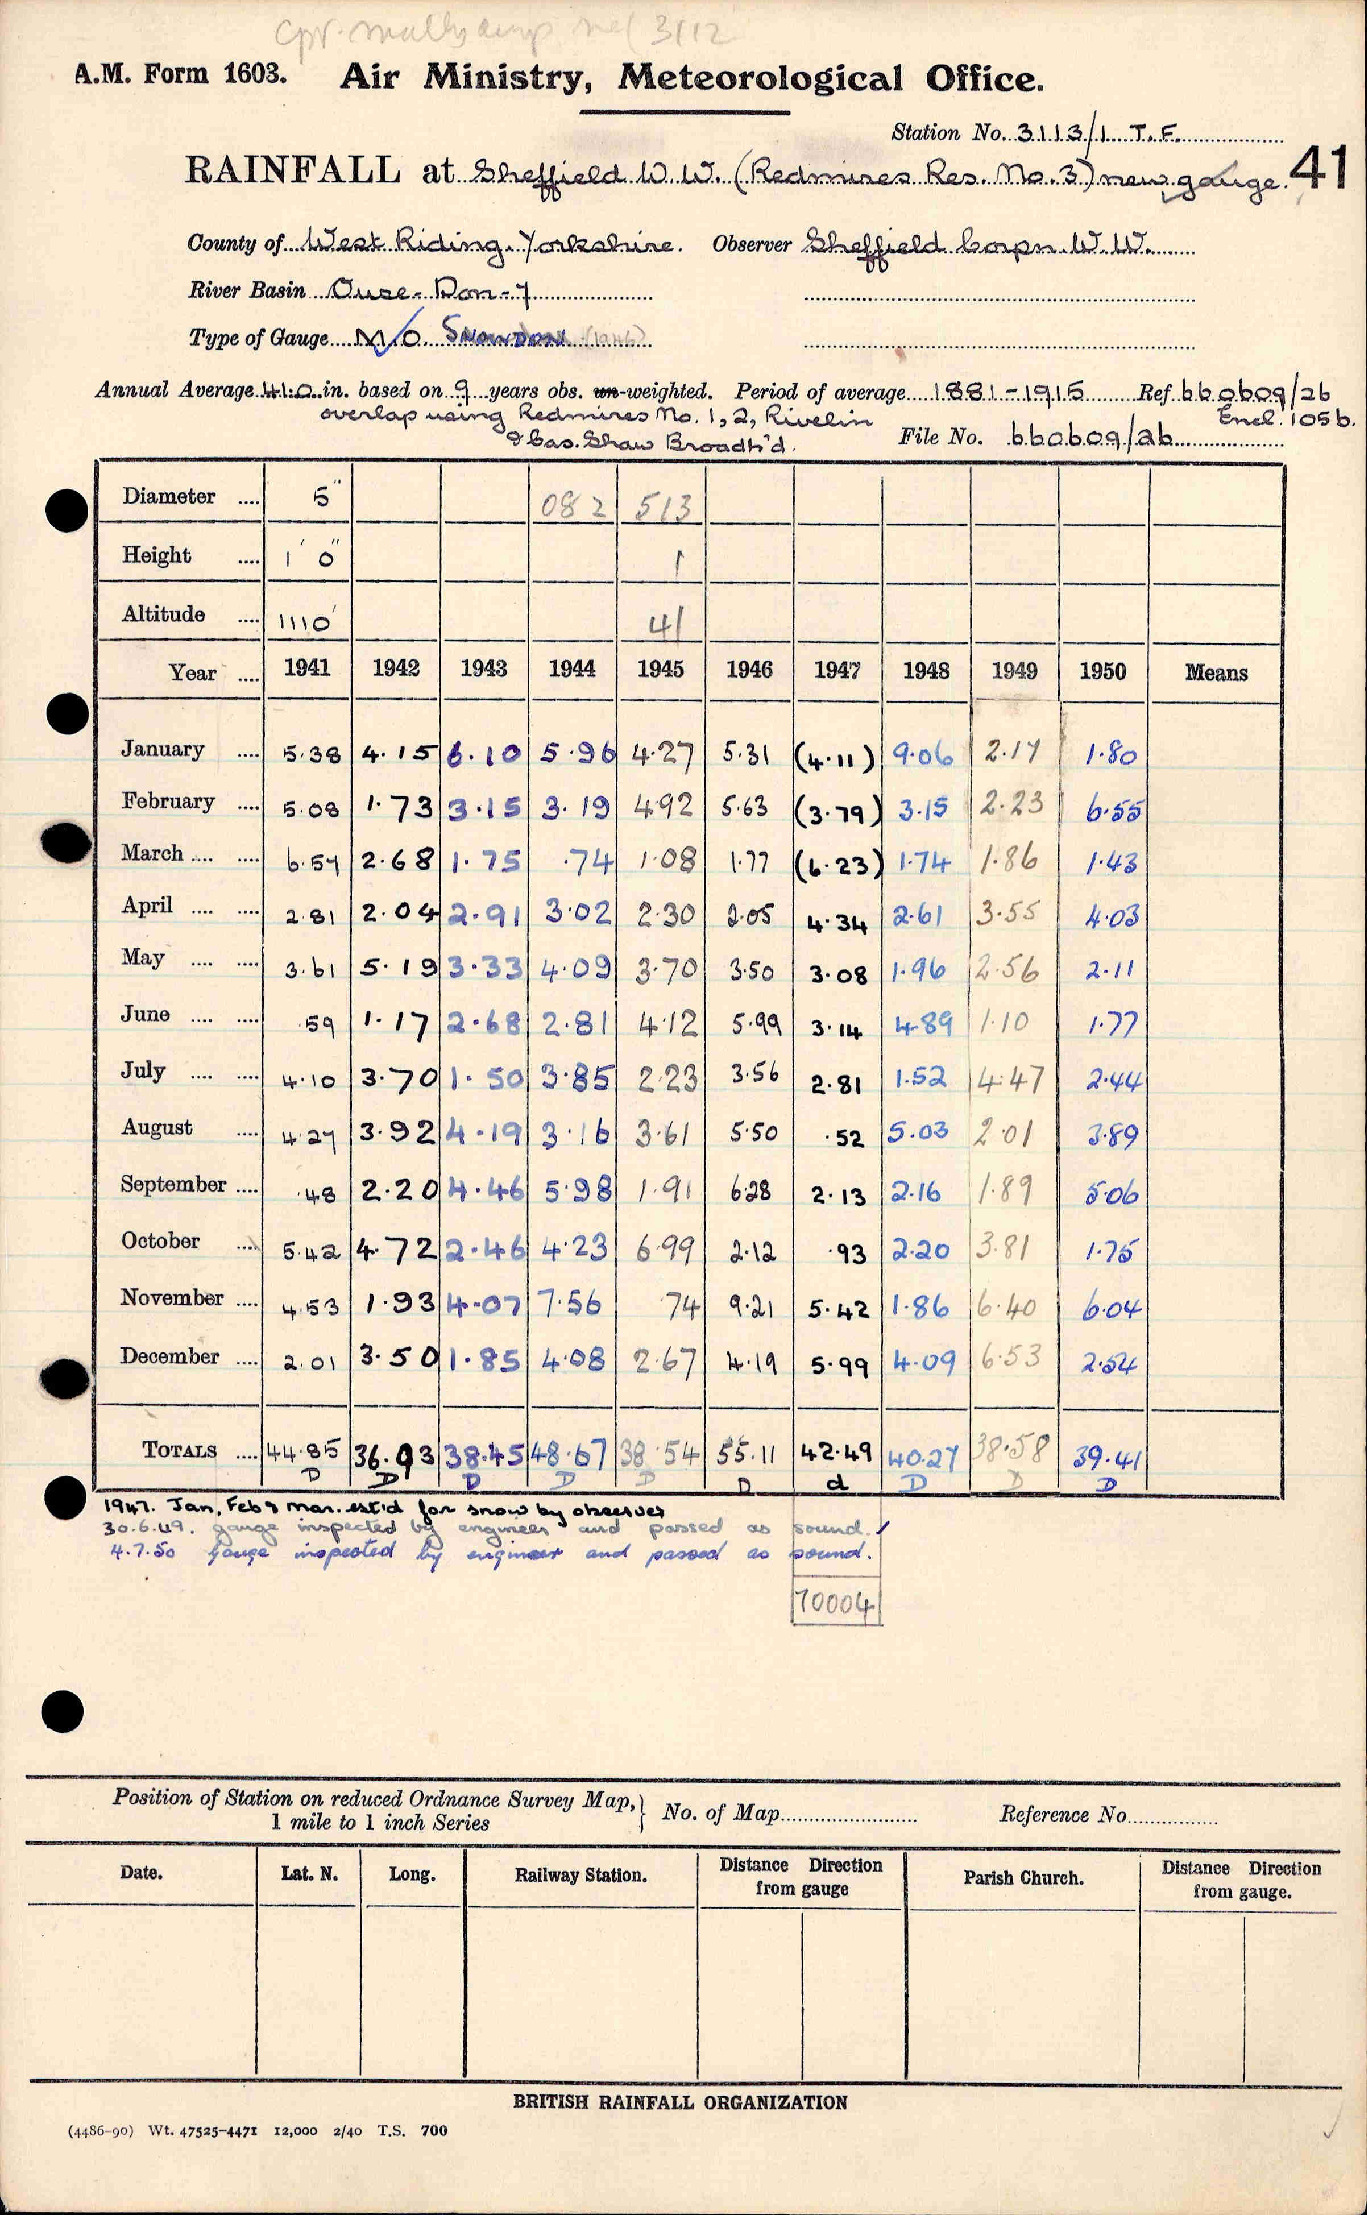 3112
A.M. Form 1603. Air Ministry, Meteorological Office.
Station No. 3113/1 T.F.
RAINFALL at Sheffield W.W. (Redmires Res. No. 3) new gauge. 41
County of West Riding, Yorkshire. Observer Sheffield Corpn W.W.
River Basin Ouse - Don - 7
Type of Gauge M O SNOWDON (1946)
Annual Average 41.0 in. based on 9 years obs. un-weighted. Period of average 1881-1915 Ref 660609/26
overlap using Redmires No. 1, 2, Rivelin Encl. 105b.
& Cas. Shaw Broadh'd. File No. 660609/26
Diameter .... 5" 082 513
Height .... 1' 0" 1
Altitude .... 1110' 41
Year .... 1941 1942 1943 1944 1945 1946 1947 1948 1949 1950 Means
January .... 5.38 4.15 6.10 5.96 4.27 5.31 (4.11) 9.06 2.17 1.80
February .... 5.08 1.73 3.15 3.19 4.92 5.63 (3.79) 3.15 2.23 6.55
March .... .... 6.57 2.68 1.75 .74 1.08 1.77 (6.23) 1.74 1.86 1.43
April .... .... 2.81 2.04 2.91 3.02 2.30 2.05 4.34 2.61 3.55 4.03
May .... .... 3.61 5.19 3.33 4.09 3.70 3.50 3.08 1.96 2.56 2.11
June .... .... .59 1.17 2.68 2.81 4.12 5.99 3.14 4.89 1.10 1.77
July .... .... 4.10 3.70 1.50 3.85 2.23 3.56 2.81 1.52 4.47 2.44
August .... 4.27 3.92 4.19 3.16 3.61 5.50 .52 5.03 2.01 3.89
September .... .48 2.20 4.46 5.98 1.91 6.28 2.13 2.16 1.89 5.06
October .... 5.42 4.72 2.46 4.23 6.99 2.12 .93 2.20 3.81 1.75
November .... 4.53 1.93 4.07 7.56 .74 9.21 5.42 1.86 6.40 6.04
December .... 2.01 3.50 1.85 4.08 2.67 4.19 5.99 4.09 6.53 2.54
TOTALS .... 44.85 36.93 38.45 48.67 38.54 55.11 42.49 40.27 38.58 39.41
D D D D D D d D D D
1947. Jan, Feb & Mar. est'd for snow by observer
30.6.49. gauge inspected by engineer and passed as sound.
4.7.50 Gauge inspected by engineer and passed as sound.
70004
Position of Station on reduced Ordnance Survey Map, } No. of Map Reference No.
1 mile to 1 inch Series
Date. Lat. N. Long. Railway Station. Distance from gauge Direction Parish Church. Distance Direction from gauge.
BRITISH RAINFALL ORGANIZATION
(4486-90) Wt. 47525-4471 12,000 2/40 T.S. 700